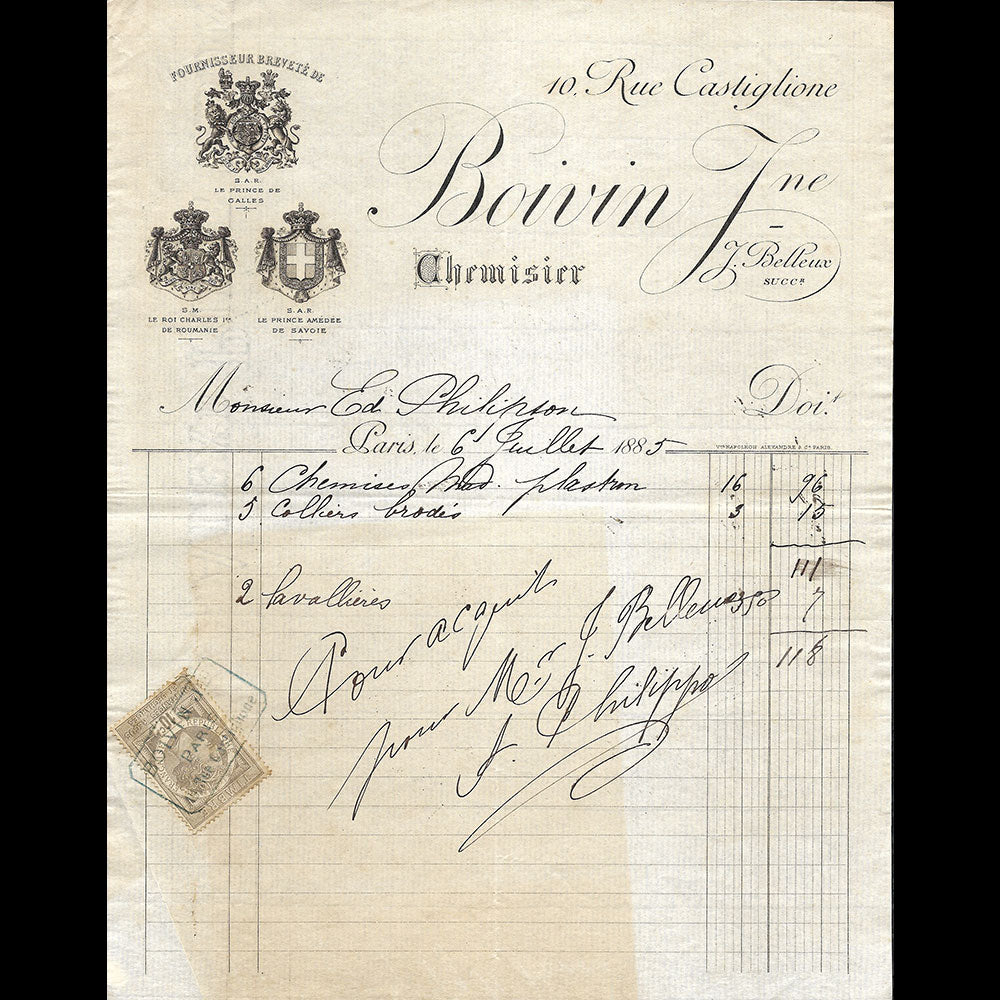 FOURNISSEUR BREVETÉ DE
S.A.R.
LE PRINCE DE
GALLES
S.M.
LE ROI CHARLES Iᴱᴿ
DE ROUMANIE
S.A.R.
LE PRINCE AMÉDÉE
DE SAVOIE
10, Rue Castiglione
Boivin Jne
J. Belleux
SUCCR
Chemisier
Monsieur Ed Philipson Doit
Paris, le 6 Juillet 1885
Vve NAPOLEON ALEXANDRE & Cie PARIS.
6 Chemises plastron 16 96
5 Colliers brodés 3 15
111
2 lavallières 3 50 7
118
Pour acquit
pour Mr J. Belleux
A. Philippo
BOIVIN